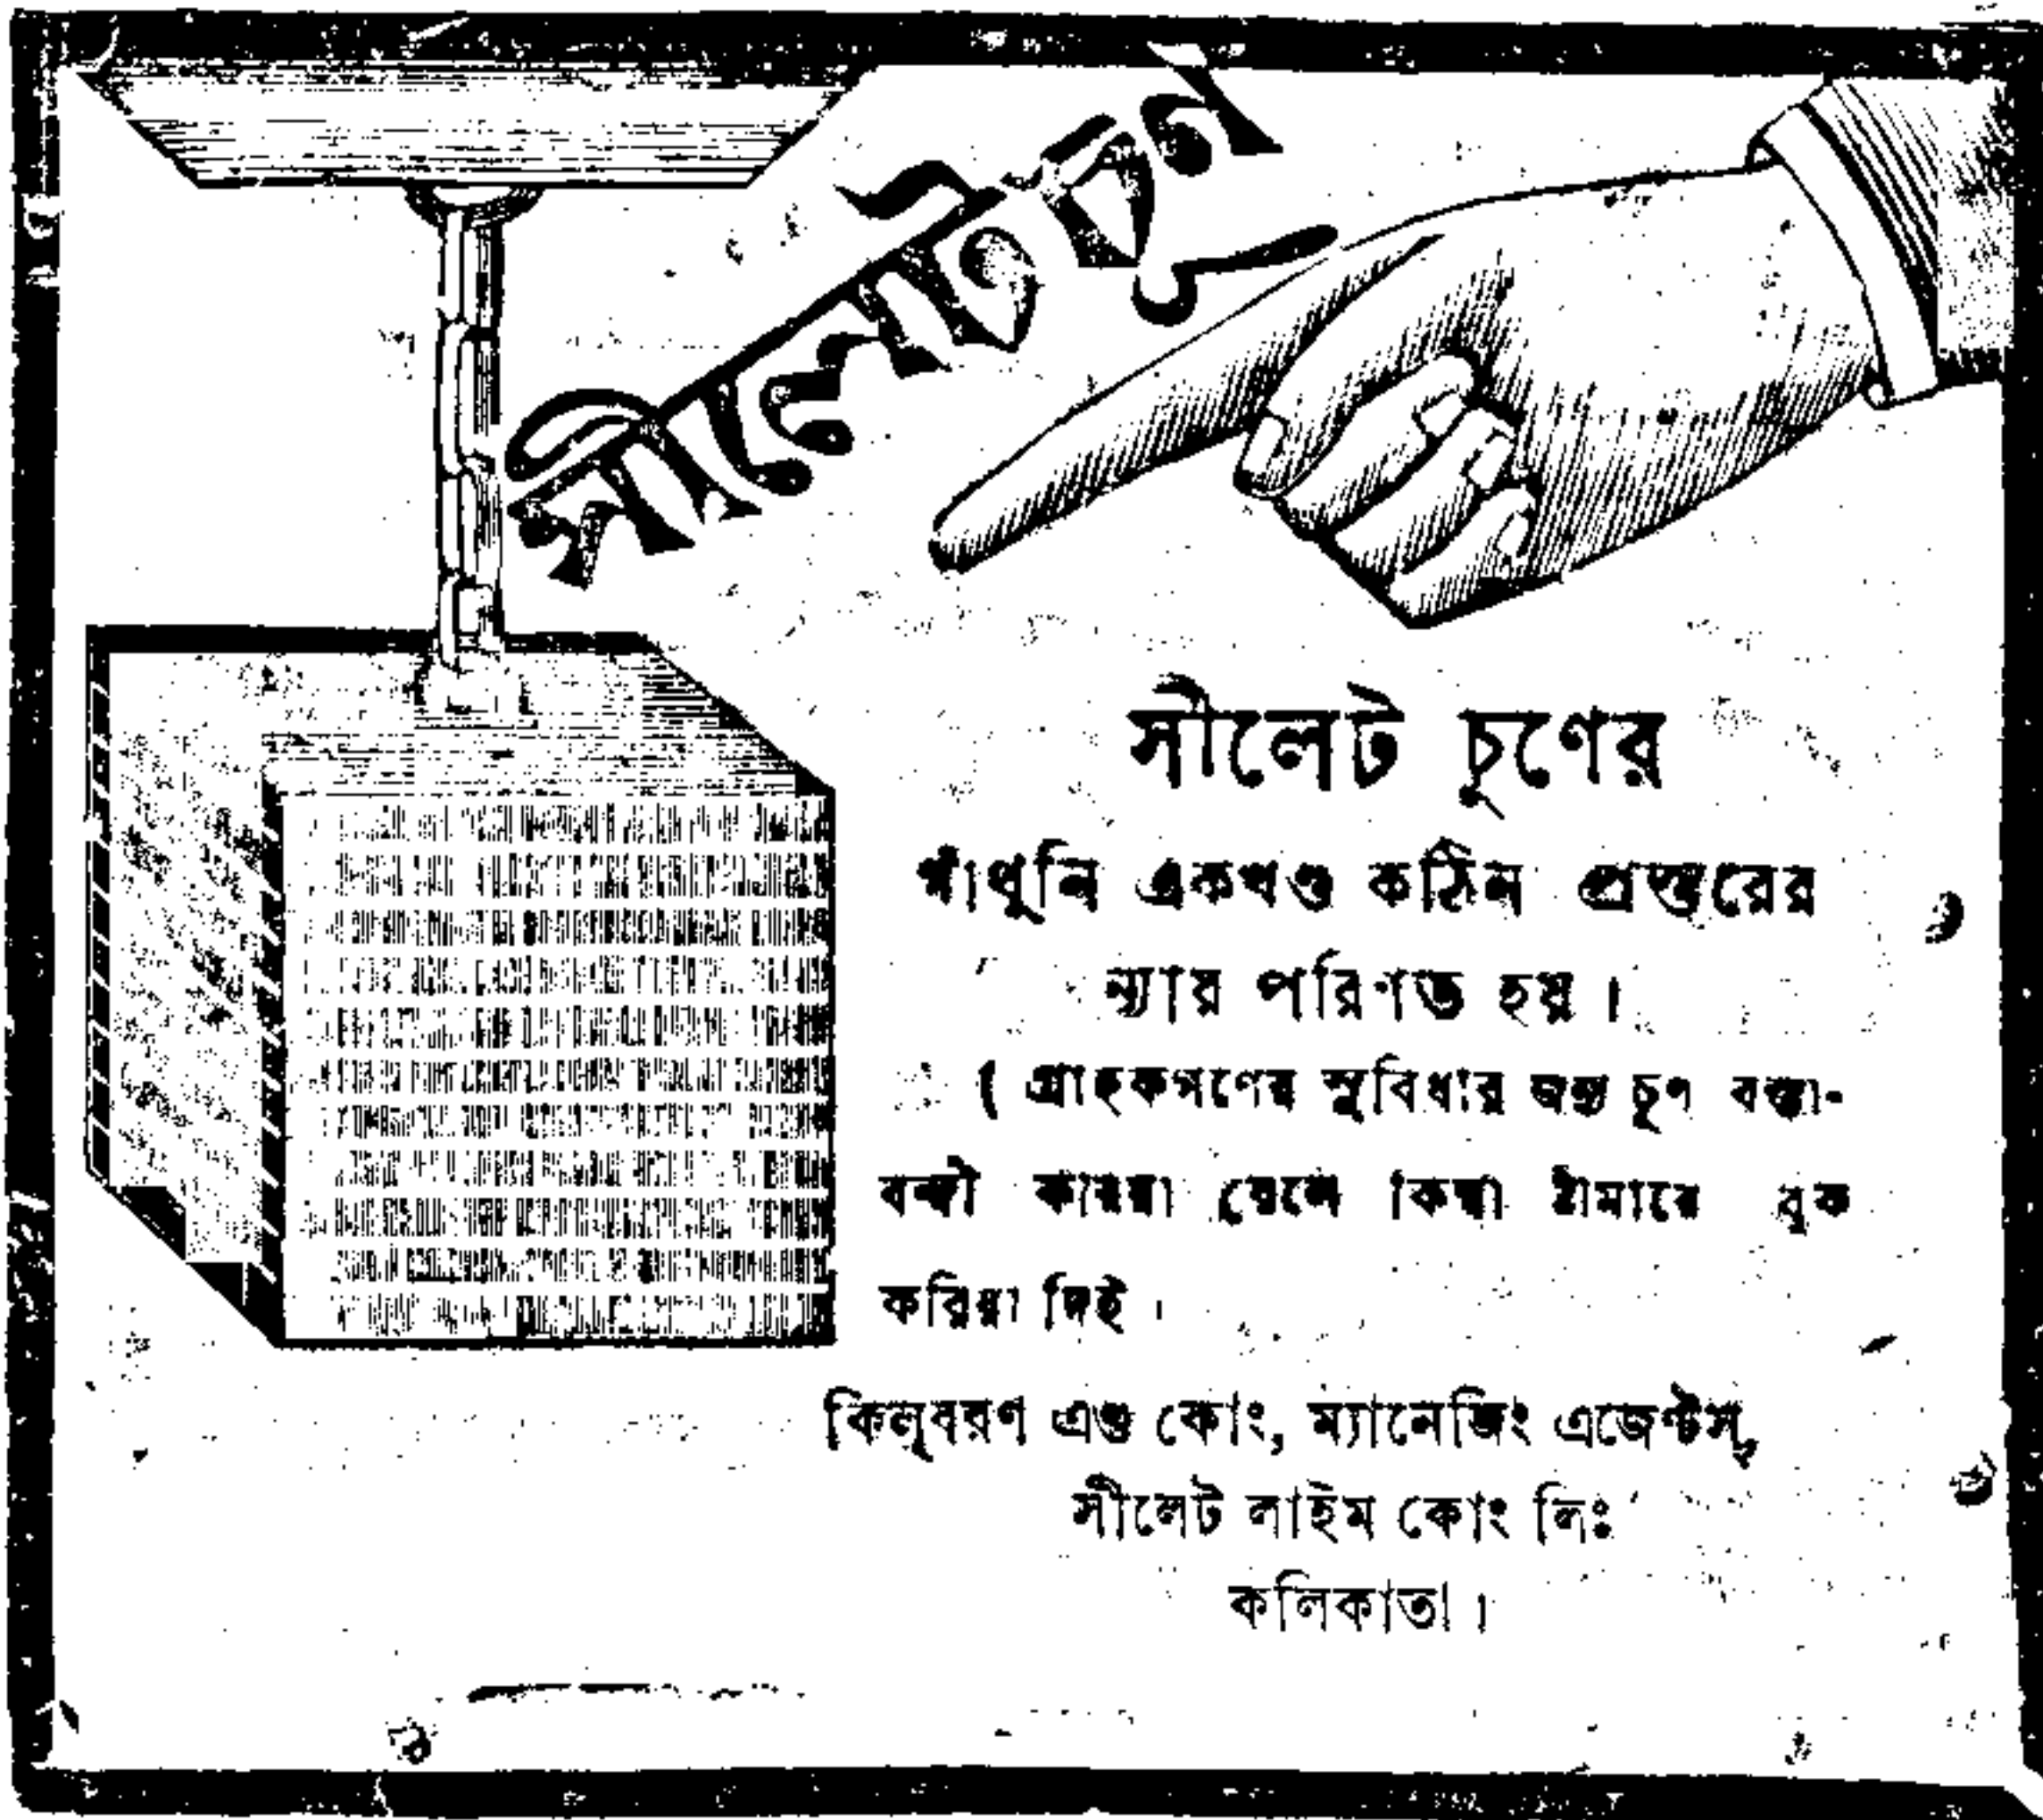 সীলেট চূণ
সীলেট চূণের
গাঁথুনি একখণ্ড কঠিন প্রস্তরের
ন্যায় পরিণত হয়।
( গ্রাহকগণের সুবিধার জন্য চূণ বস্তা-
বন্দী করিয়া রেলে কিম্বা ষ্টীমারে বুক
করিয়া দিই।
কিলবরণ এণ্ড কোং, ম্যানেজিং এজেণ্টস্,
সীলেট লাইম কোং লিঃ
কলিকাতা।